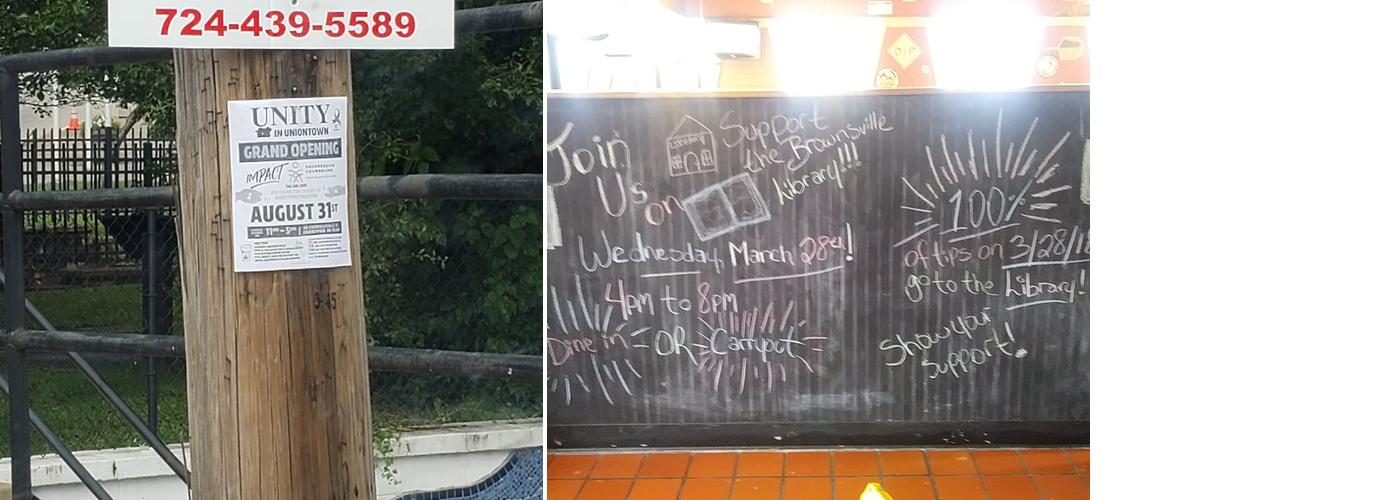 724-439-5589
UNITY
IN UNIONTOWN
GRAND OPENING
IMPACT
AUGUST 31ST
3-45
DIP
Join
Us on
LIBRARY
Support
the Brownsville
Library!!!
Wednesday, March 28th!
4pm to 8pm
Dine in - OR - Carryout
100%
of tips on 3/28/18
go to the Library!
Show your
Support!